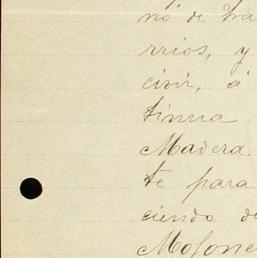 nó de tra
rrios, y
civir, á
tinua
Madera.
te para
ciendo de
Mojone